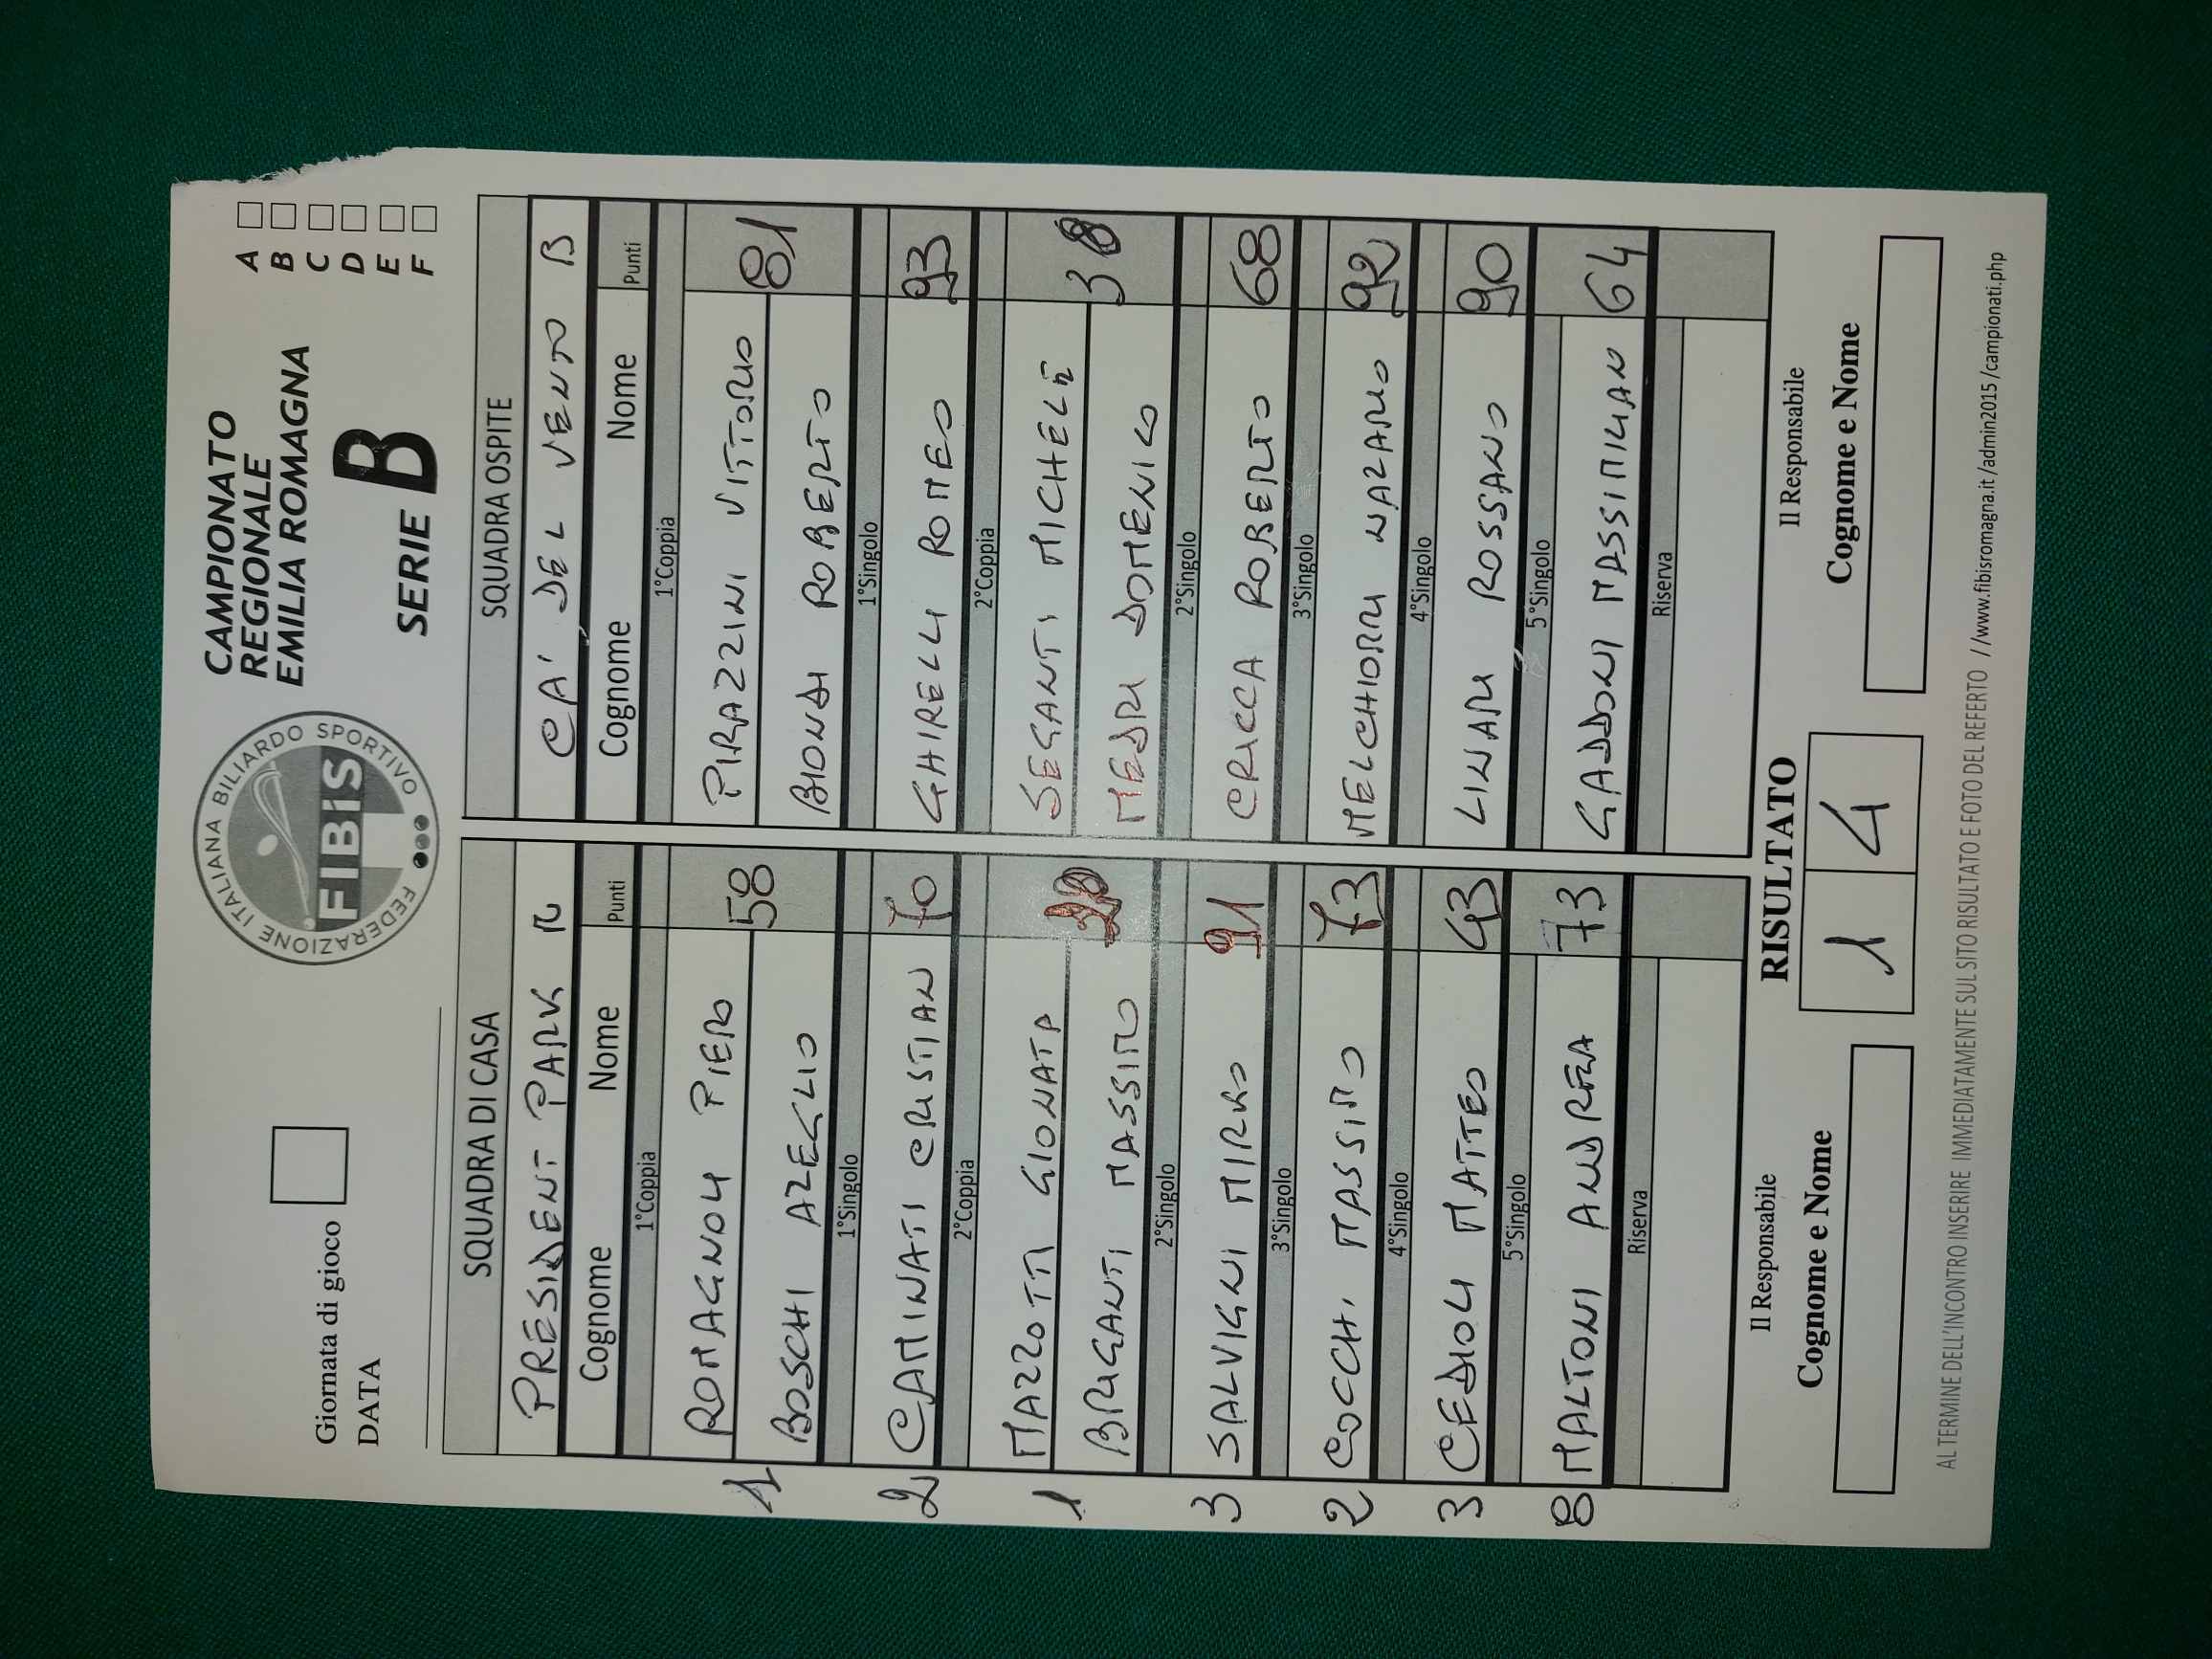 FEDERAZIONE ITALIANA BILIARDO SPORTIVO
FIBiS
CAMPIONATO
REGIONALE
EMILIA ROMAGNA
SERIE B
A
B
C
D
E
F
Giornata di gioco
DATA
SQUADRA DI CASA SQUADRA OSPITE
PRESIDENT PARK CA' DEL VENTO B
Cognome Nome Punti Cognome Nome Punti
1°Coppia 1°Coppia
ROMAGNOLI PIERO PIRAZZINI VITTORIO
1 58 81
BOSCHI AZEGLIO BIONDI ROBERTO
1°Singolo 1°Singolo
2 CAMINATI CRISTIAN 70 GHIRELLI ROMEO 93
2°Coppia 2°Coppia
MAZZOTTI GIONATA SEGANTI MICHELE
1
BRIGANTI MASSIMO MEDRI DOMENICO
2°Singolo 2°Singolo
3 SALVIGNI MIRKO 91 CRICCA ROBERTO 68
3°Singolo 3°Singolo
2 COCCHI MASSIMO 73 MELCHIORRI NAZARIO 92
4°Singolo 4°Singolo
3 CEDIOLI MATTEO 43 LINARI ROSSANO 90
5°Singolo 5°Singolo
8 MALTONI ANDREA 73 GADDONI MASSIMILIAN 64
Riserva Riserva
Il Responsabile RISULTATO Il Responsabile
Cognome e Nome 1 4 Cognome e Nome
AL TERMINE DELL'INCONTRO INSERIRE IMMEDIATAMENTE SUL SITO RISULTATO E FOTO DEL REFERTO //www.fibisromagna.it/admin2015/campionati.php